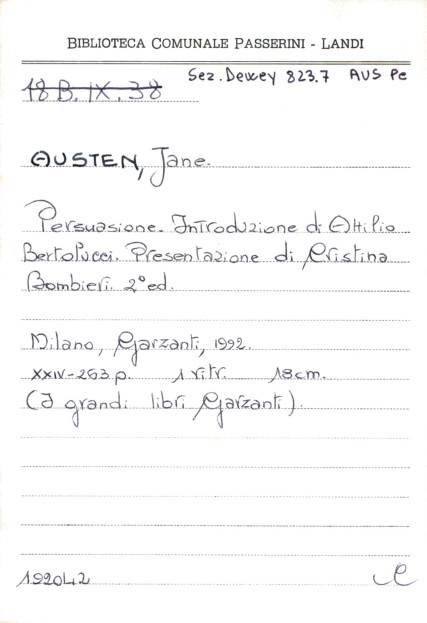 BIBLIOTECA COMUNALE PASSERINI - LANDI
Sez. Dewey 823.7 AUS Pe
18 B. IX. 38
AUSTEN, Jane.
Persuasione. Introduzione di Attilio
Bertolucci. Presentazione di Cristina
Bombieri. 2° ed.
Milano, Garzanti, 1992.
XXIV-263 p. 1 ritr. 18 cm.
(I grandi libri Garzanti).
192042